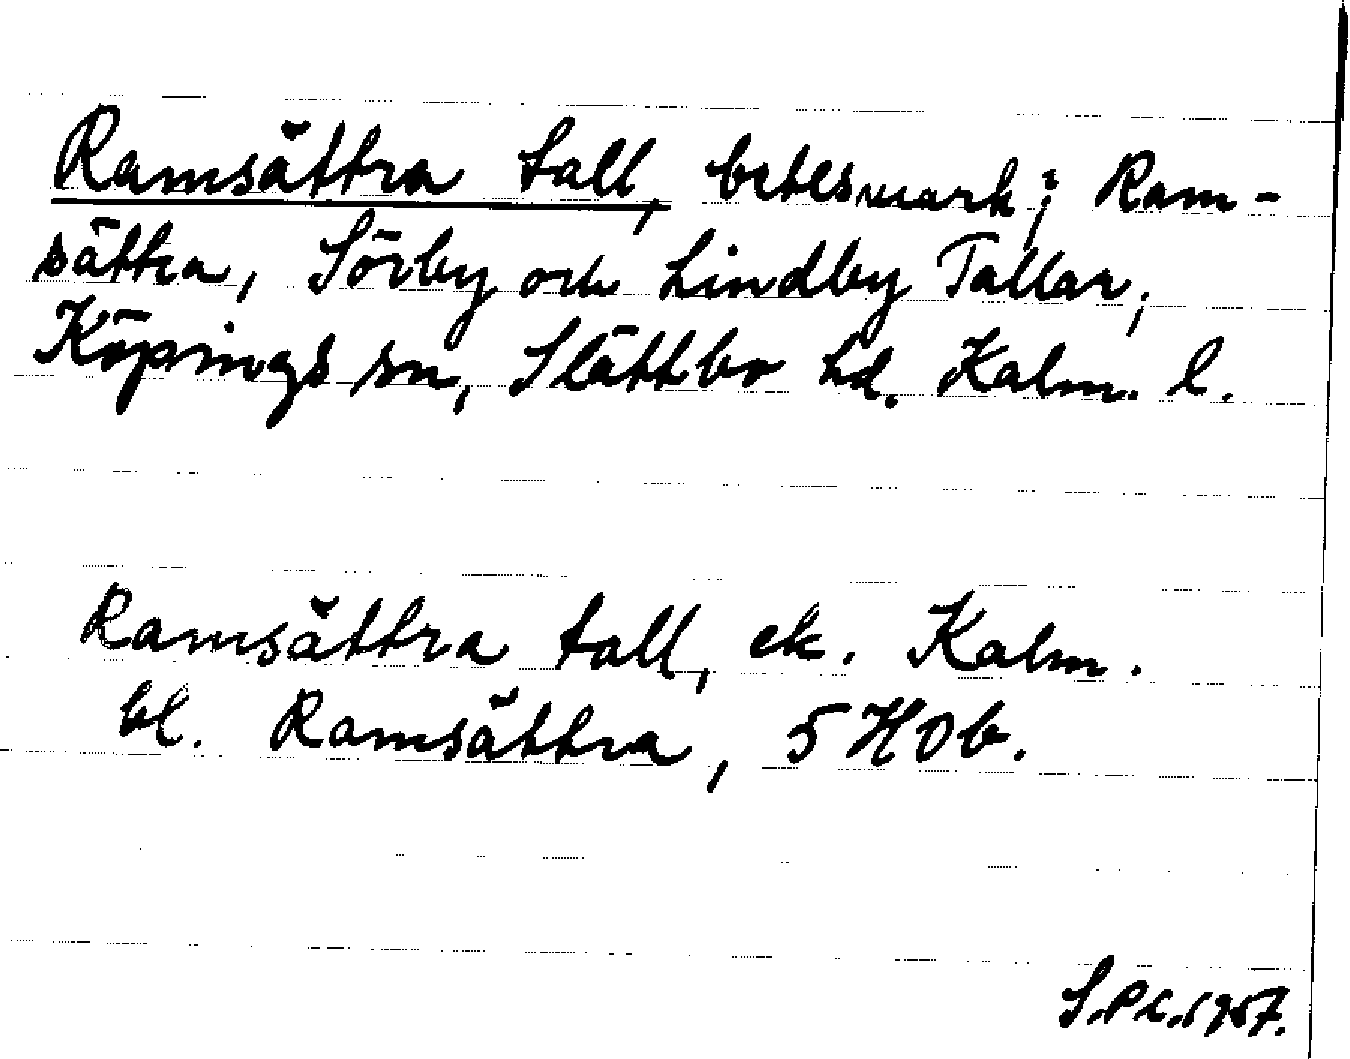 Ramsättra tall, betesmark; Ram-
sättra, Sörby och Lindby Tallar,
Köpings sn, Slättbo hd. Kalm. l.
Ramsättra tall, ek. Kalm.
bl. Ramsättra, 5 H0b.
1957.